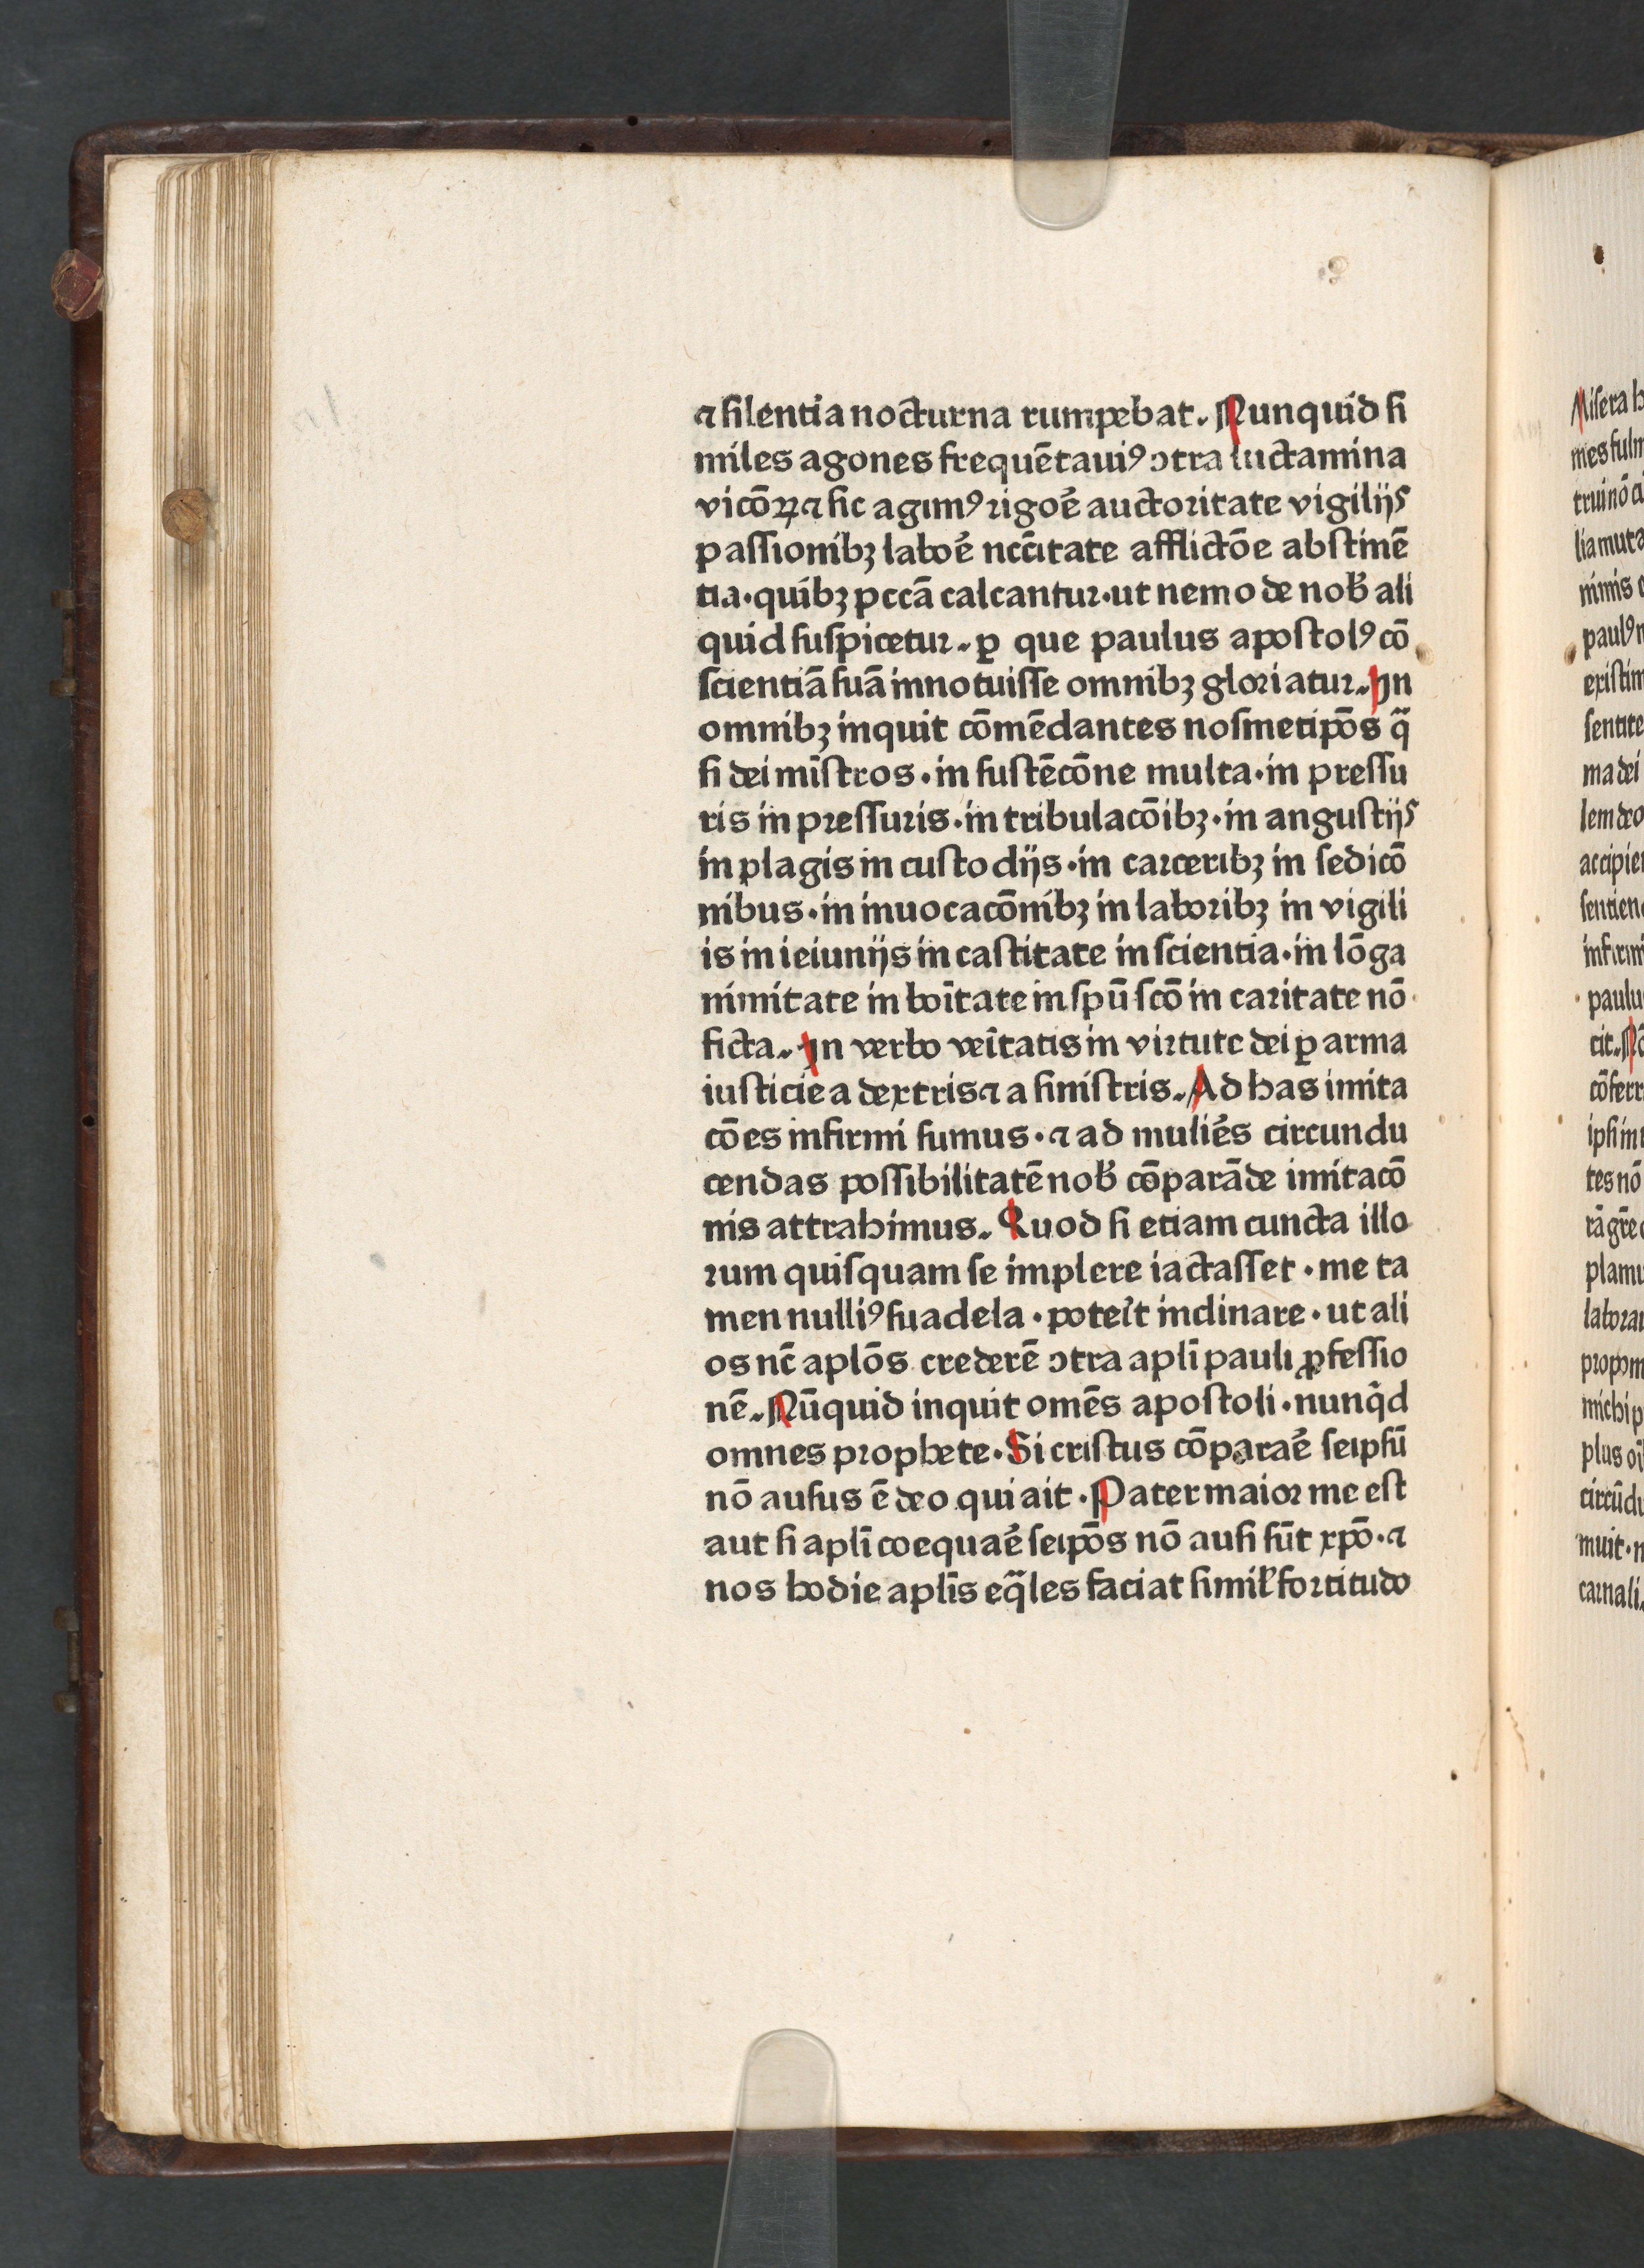 ⁊ ſilentia nocturna rumpebat. Nunquid ſi
miles agones frequētauiꝰ ↄtra luctamina
vicōꝝ ⁊ ſic agimꝰ rigoē auctoritate vigilijs
paſſionibꝫ laboē nccītate afflictōe abſtinē
tia·quibꝫ pccā calcantur·ut nemo de nob̄ ali
quid ſuſpicetur. ꝑ que paulus apoſtolꝰ cō
ſcientiā ſuā innotuiſſe omnibꝫ gloriatur. In
omnibꝫ inquit cōmēdantes noſmetip̄os qͣ
ſi dei miſtros·in ſuſtēcōne multa·in preſſu
ris in preſſuris·in tribulacōibꝫ·in anguſtijs
in plagis in cuſtodijs·in carceribꝫ in ſedicō
nibus·in inuocacōnibꝫ in laboribꝫ in vigili
is in ieiunijs in caſtitate in ſcientia·in lōga
nimitate in boītate in ſpū ſcō in caritate nō
ficta. In verbo veītatis in virtute dei ꝑ arma
iuſticie a dextris ⁊ a ſiniſtris. Ad has imita
cōes infirmi ſumus·⁊ ad muliēs circundu
cendas poſſibilitatē nob̄ cōparāde imitacō
nis attrahimus. Quod ſi etiam cuncta illo
rum quiſquam ſe implere iactaſſet·me ta
men nulliꝰ ſuadela·poteīt inclinare·ut ali
os nc̄ aplōs crederē ↄtra apli̅ pauli ꝓfeſſio
nē. Nūquid inquit omēs apoſtoli·nunq̄d
omnes prophete·Si criſtus cōparaē ſeipſū
nō auſus ē deo qui ait·Pater maior me eſt
aut ſi apli̅ coequaē ſeip̄os nō auſi ſūt xp̄o·⁊
nos hodie apli̅s eqͣles faciat ſimil̕ fortitudo